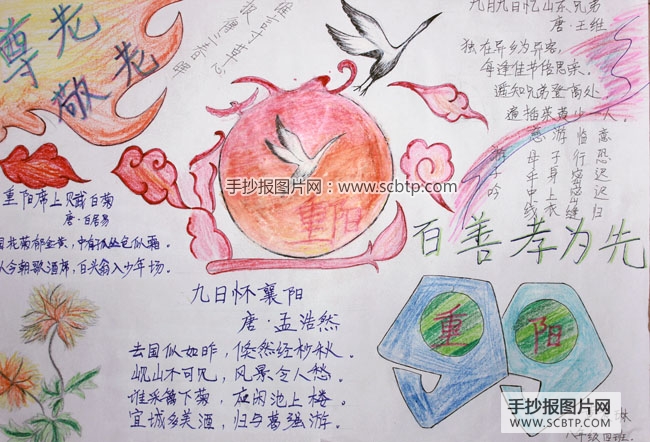 尊老
敬老
谁言寸草心
报得三春晖
九月九日忆山东兄弟
唐·王维
独在异乡为异客，
每逢佳节倍思亲。
遥知兄弟登高处
遍插茱萸少一人。
游子吟
慈母手中线
游子身上衣
临行密密缝
意恐迟迟归
重阳席上赋白菊
唐·白居易
园花菊郁金黄，中有孤丛色似霜。
从今朝歌酒席，白头翁入少年场。
重阳
手抄报图片网：www.scbtp.com
百善孝为先
九日怀襄阳
唐·孟浩然
去国似如昨，倏然经杪秋。
岘山不可见，风景令人愁。
谁采篱下菊，应闲池上楼。
宜城多美酒，归与葛强游。
重
阳
手抄报图片网
WWW.SCBTP.COM
琳
八年级四班